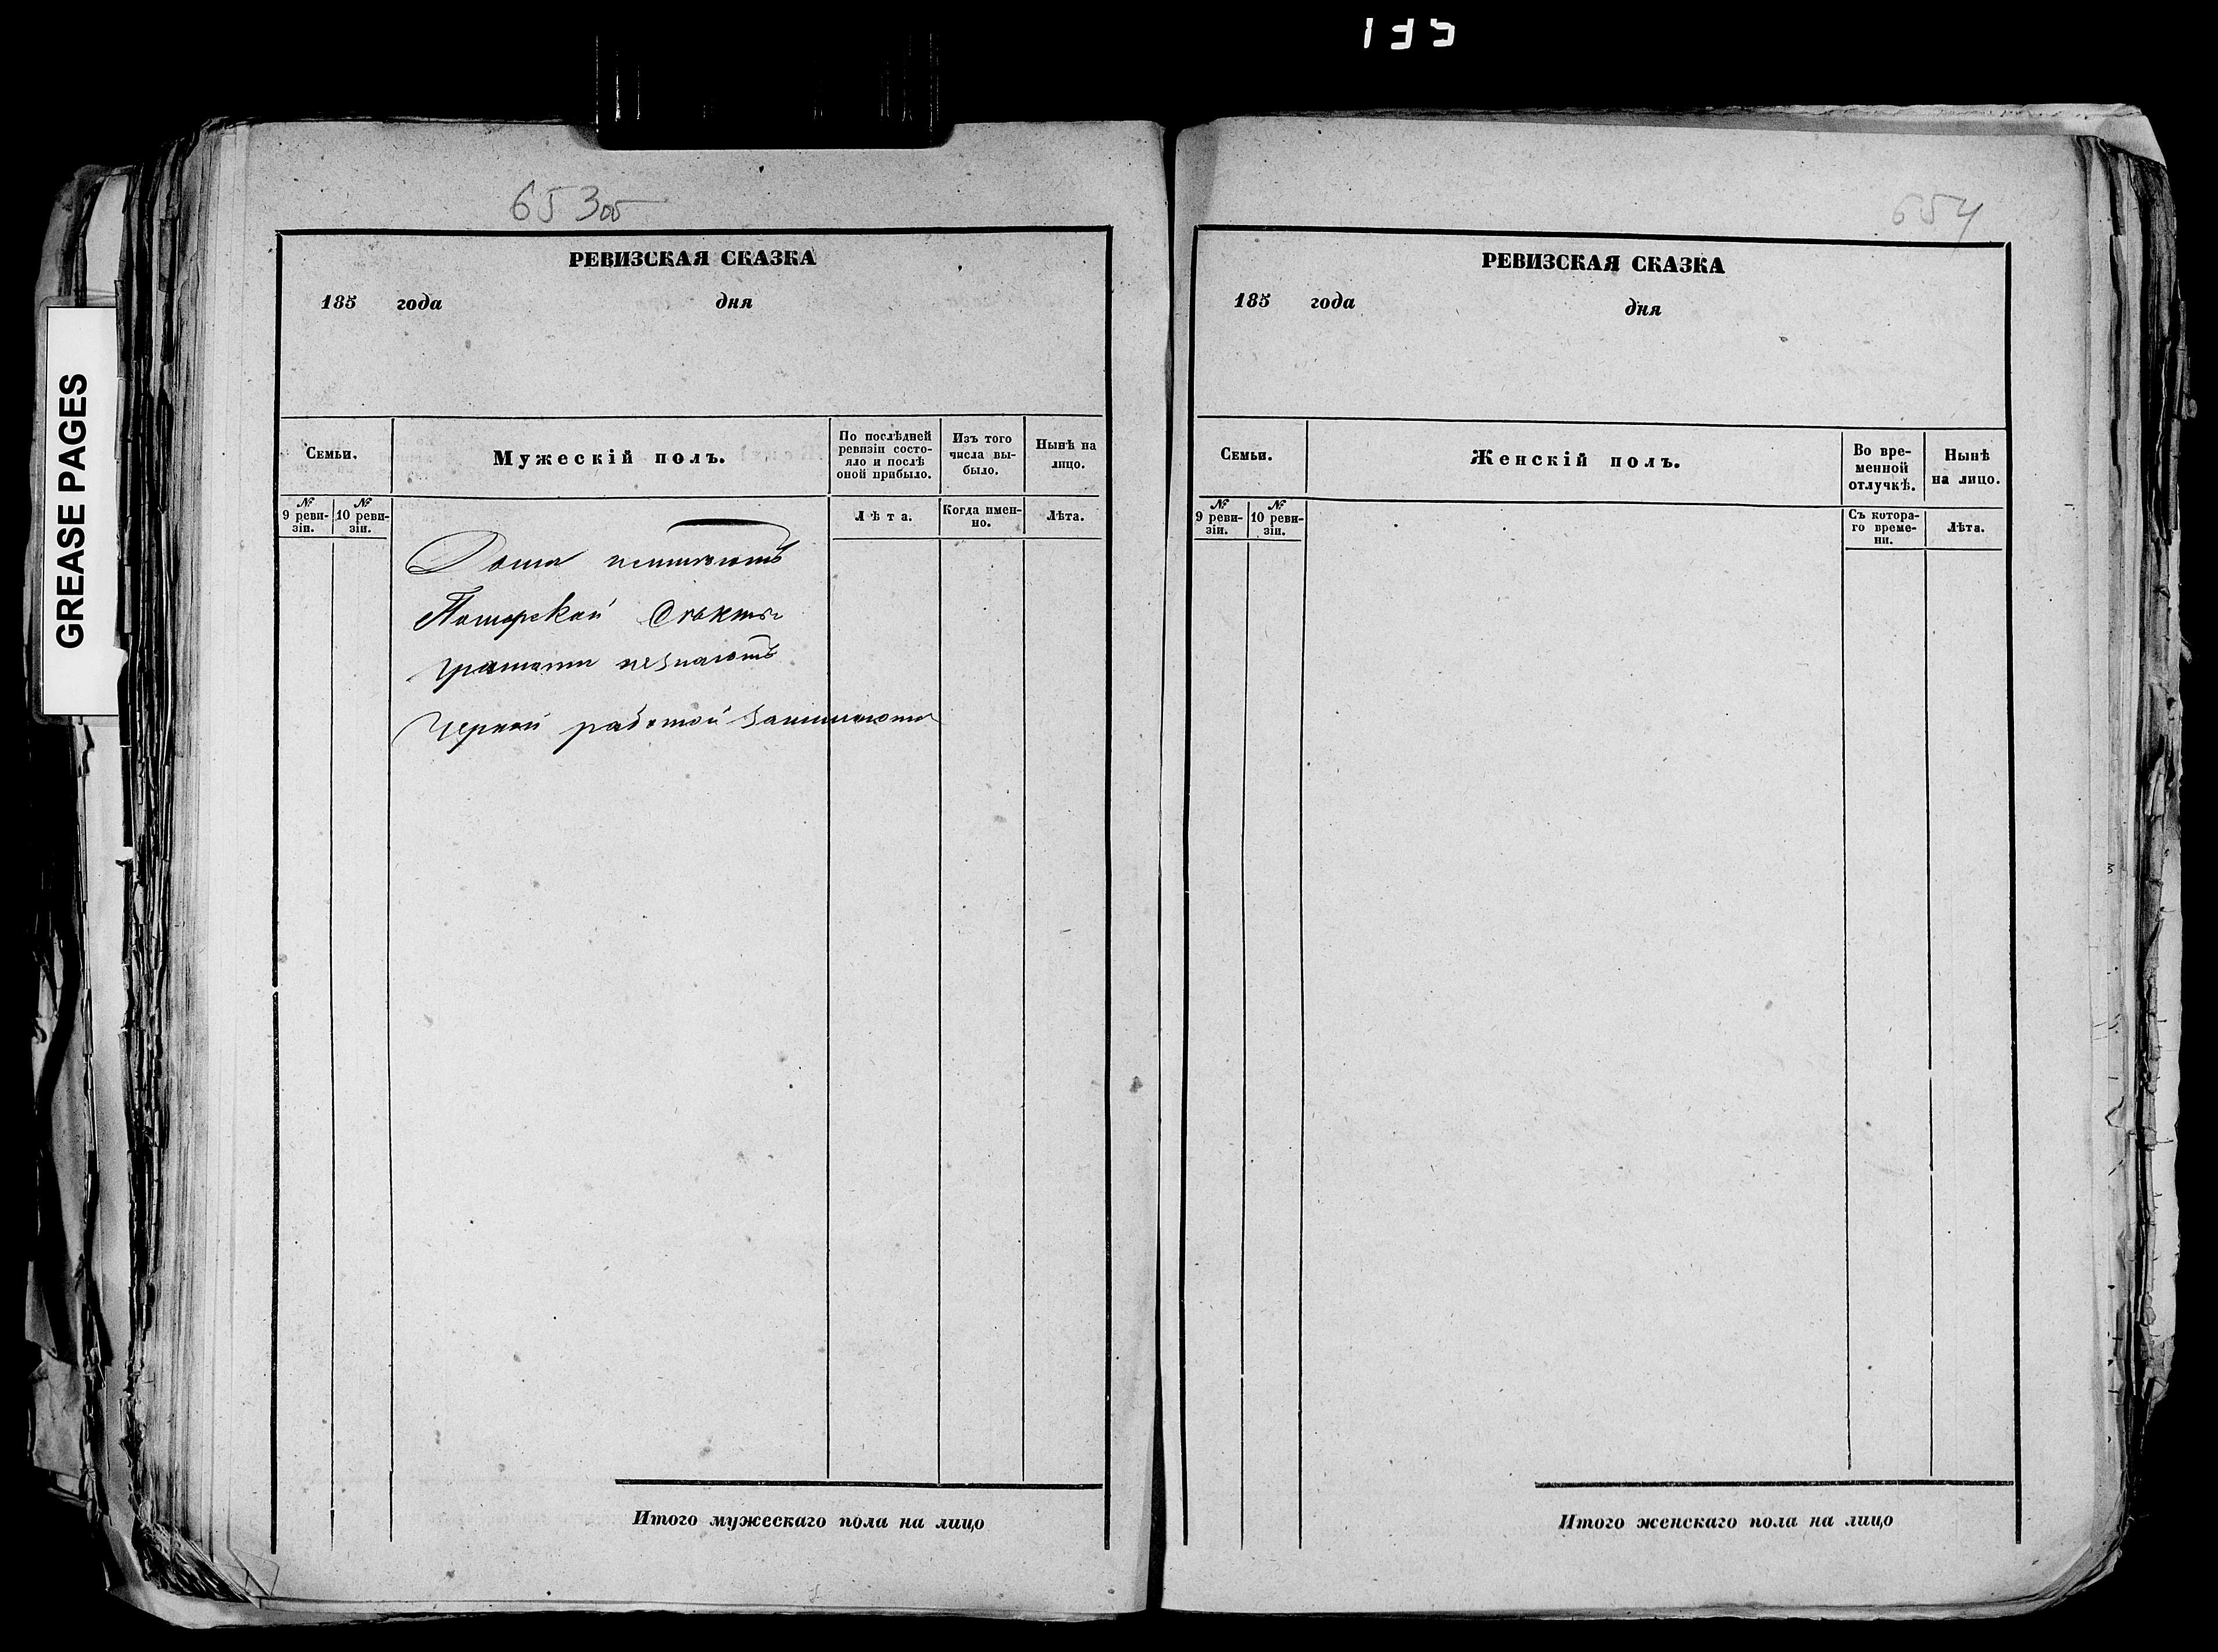 135
GREASE PAGES
653об
РЕВИЗСКАЯ СКАЗКА
185 года дня
Семьи.
Мужескій полъ.
По послѣдней
ревизіи состо-
яло и послѣ
оной прибыло.
Изъ того
числа вы-
было.
Нынѣ на
лицо.
№
9 реви-
зіи.
№
10 реви-
зіи.
Лѣта.
Когда имен-
но.
Лѣта.
Дома
Поморской Секты
грамоти незнаютъ
черной работой занимаютъ
Итого мужескаго пола на лицо
654
РЕВИЗСКАЯ СКАЗКА
185 года дня
Семьи.
Женскій полъ.
Во вре-
менной
отлучкѣ.
Нынѣ
на лицо.
№
9 реви-
зіи.
№
10 реви-
зіи.
Съ котора-
го време-
ни.
Лѣта.
Итого женскаго пола на лицо